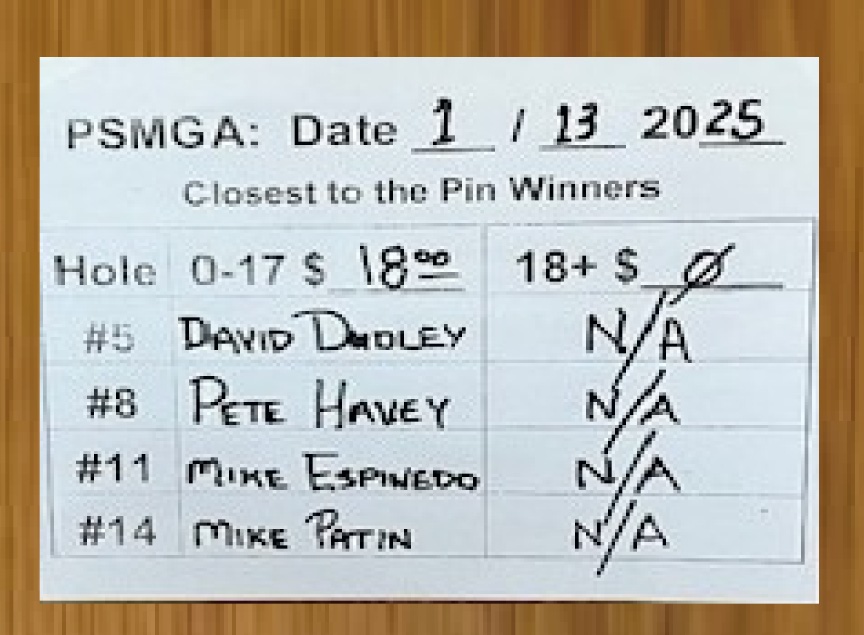 PSMGA: Date 1 / 13 2025
Closest to the Pin Winners
Hole 0-17 $ 18⁰⁰ 18+ $ Ø
#5 DAVID DUDLEY N/A
#8 PETE HAVEY N/A
#11 MIKE ESPINEDO N/A
#14 MIKE PATIN N/A